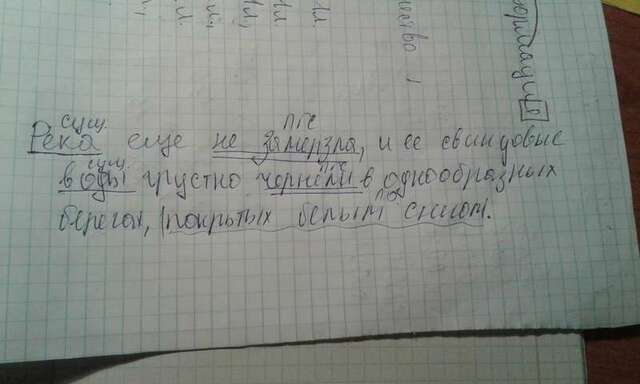 сущ. ПГС
Река еще не замерзла, и ее свинцовые
сущ. ПГС
воды грустно чернели в однообразных
ПО
берегах, покрытых белым снегом.